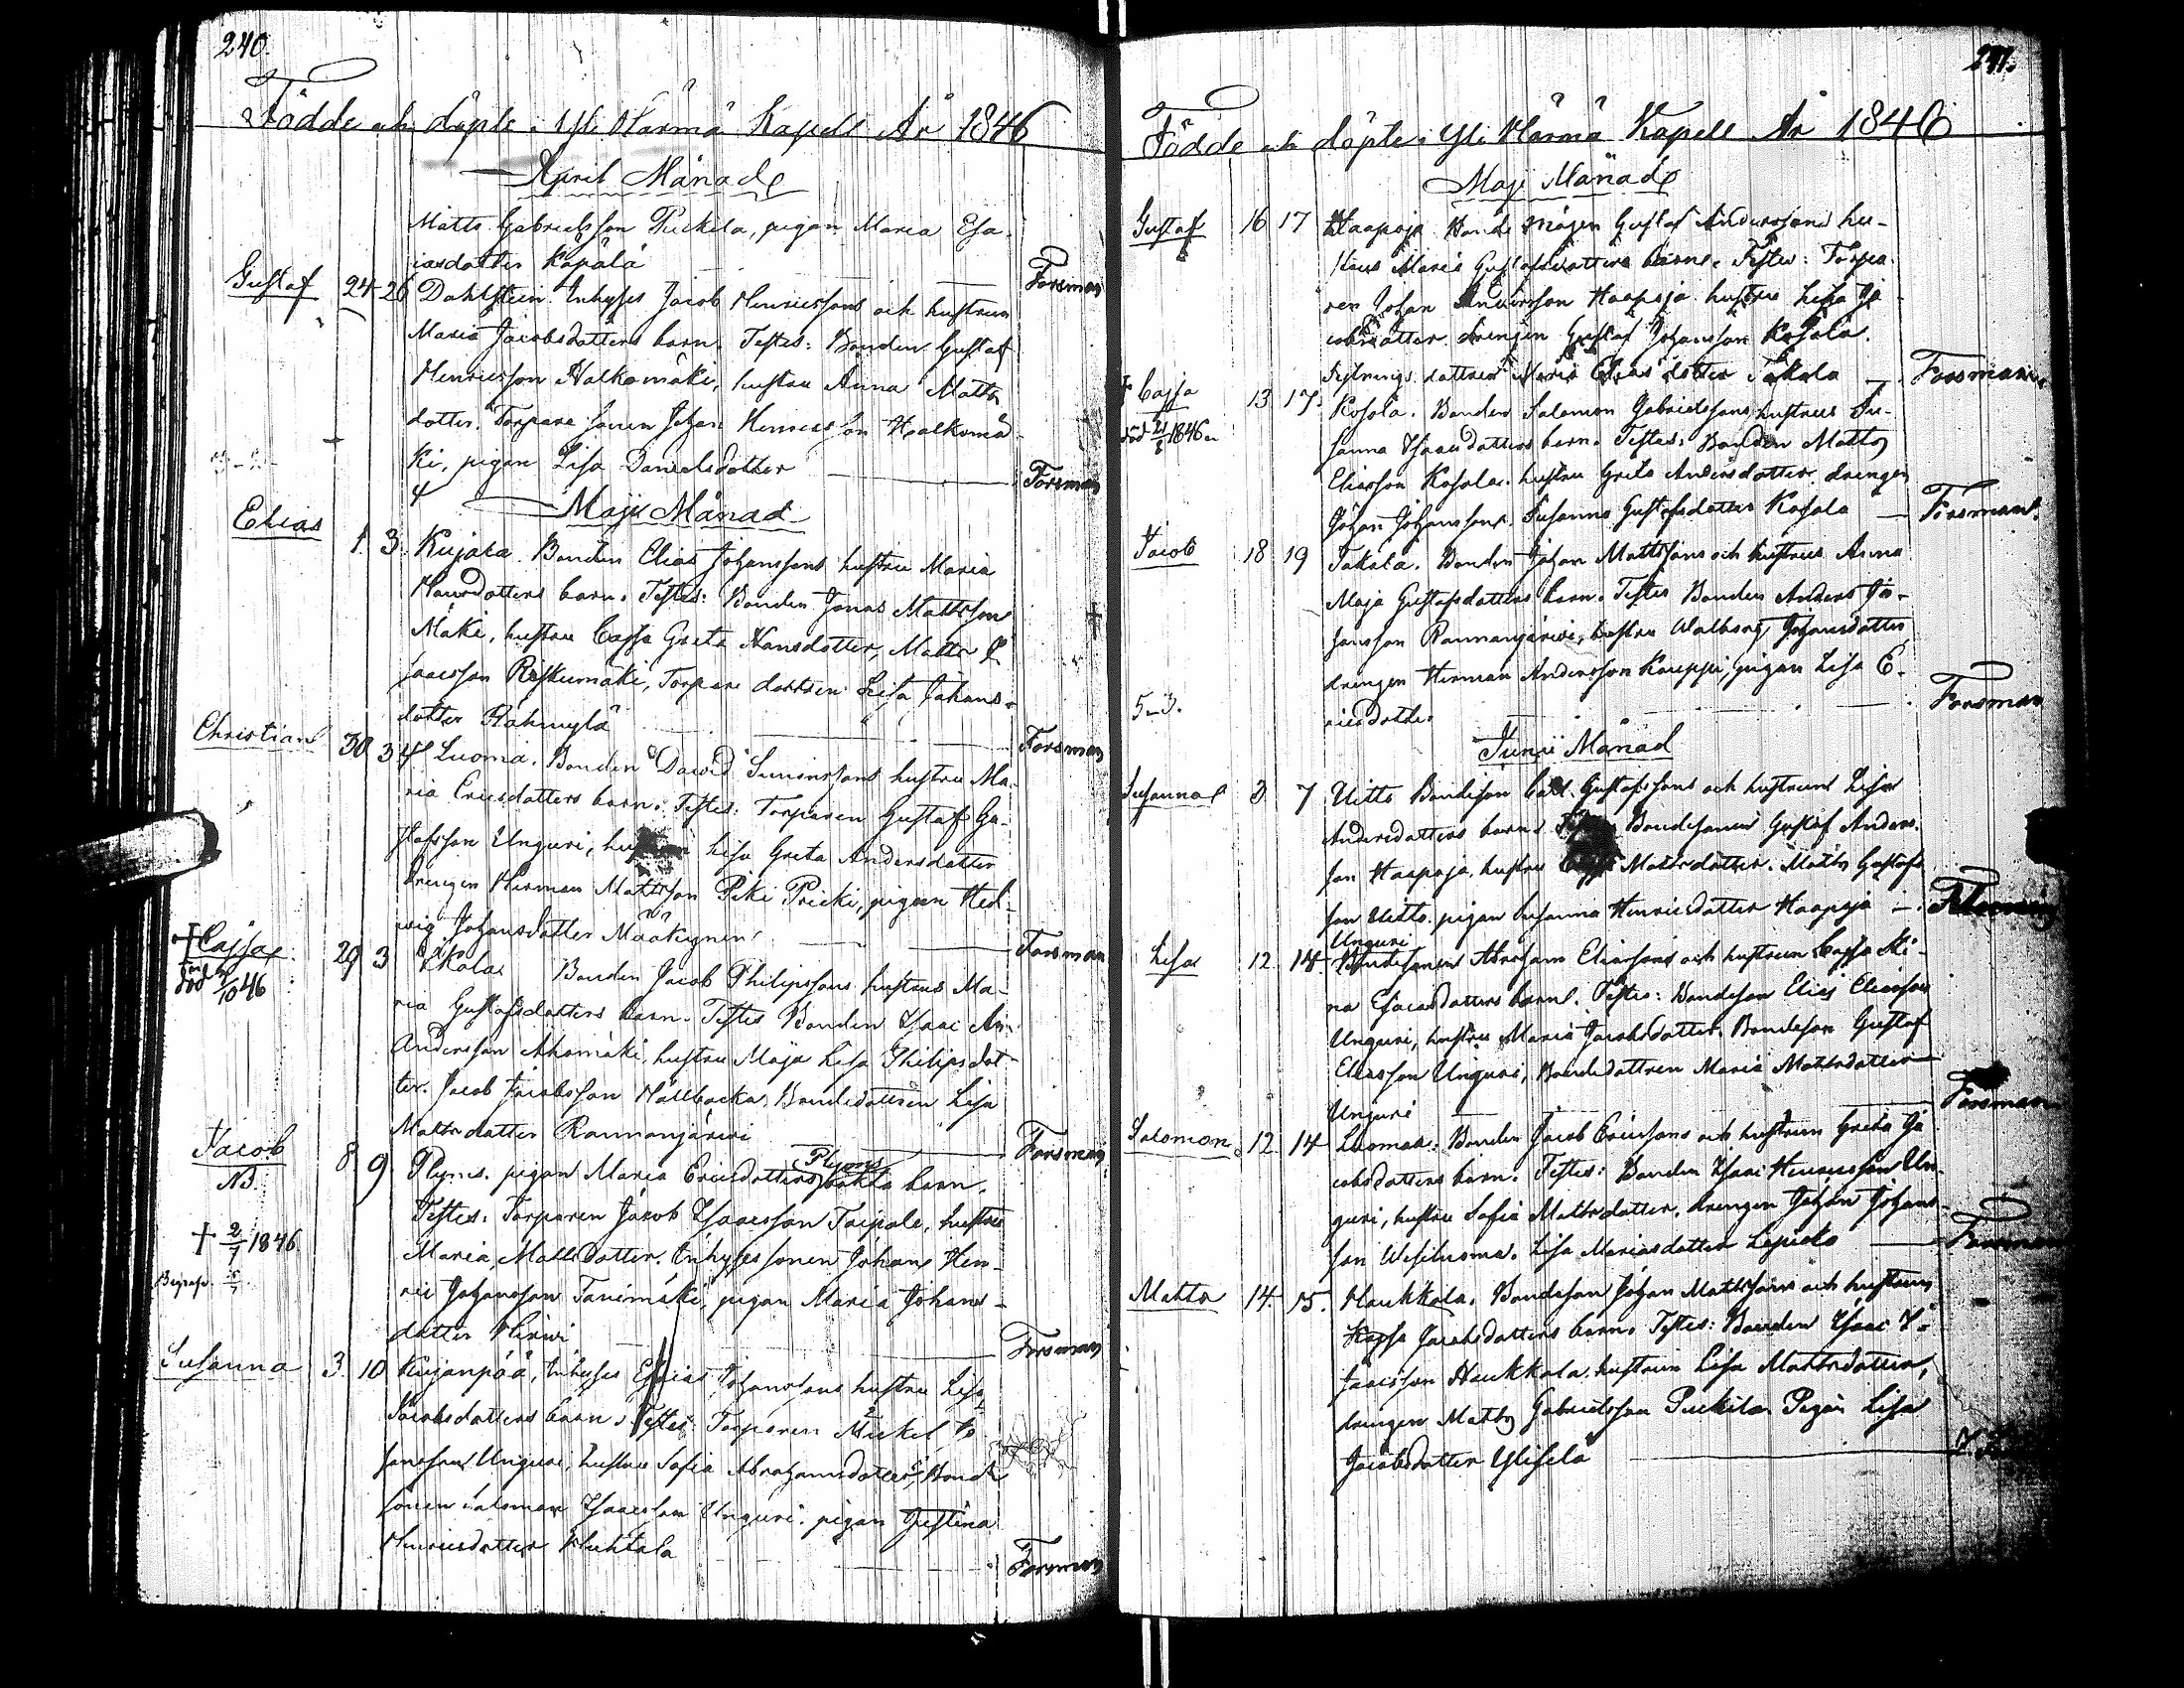 240.
Födde och döpte i Ylihärmä Kapell År 1846
April Månad
Matts Gabrielsson Puckila, pigan Maria Esa-
iasdotter Käpälä Forsman
Gustaf 24 26 Dahlstein. Inhyses Jacob Henricssons och hustrun
Maria Jacobsdotters barn. Testes: Bonden Gustaf
Henricsson Halkomäki, hustru Anna Matts
dotter. Torpare sonen Johan Henricsson Halkomä-
ki, pigan Lisa Danielsdotter Forsman
Maji Månad
Elias 1. 3. Kujala Bonden Elias Johanssons hustru Maria
Hansdotters barn. Testes: Bonden Jonas Mattsson
Mäki, hustru Cajsa Greta Hansdotter, Matts I-
saacsson Riskumäki, Torpare dottren Lisa Johans-
dotter Forsman
Christian 30 3 Luoma. Bonden David Simonssons hustru Ma-
ria Ericsdotters barn. Testes: Torparen Gustaf Gu-
stafsson Unguri, Lisa Greta Andersdotter
drengen Herman Mattsson Piki Pricki, pigan Hed-
wig Johansdotter Forsman
+ Cajsa 29 3 Bonden Jacob Philipssons hustrus Ma-
död 46
ria Gustafsdotters barn. Testes Bonden Isaac An-
Andersson Ahomäki, hustru Maja Lisa Philipsdot-
ter. Jacob Jacobsson Hällbacka, Bondedottren Lisa
Mattsdotter Rannanjärwi Forsman
Jacob 8 9 Plyms. pigan Maria Ericsdotters Plyms barn.
NB.
Testes: Torparen Jacob Isaacsson Taipale, hustru
+ 2/7 1846.
Maria Mattsdotter. Inhyses sonen Johan Hen-
ric Johansson Tanimäki, pigan Maria Johans-
dotter Hirwi Forsman
Susanna 3. 10 Kujanpää, Inhyses Esaias Johanssons hustru Lisa
Jacobsdotters barn. Testes: Torparen Mickel Jo-
hansson Unguri, hustru Sofia Abrahamsdotter, Bonde
sonen Salomon Isaacsson Unguri. pigan Justina
Henricsdotter Huhtala Forsman
241.
Födde och döpte i Ylihärmä Kapell År 1846
Maji Månad
Gustaf 16 17 Haapoja Bonde mågen Gustaf Anderssons hu-
strus Maria Gustafsdotters barn. Testes: Torpa-
ren Johan Andersson Haapoja hustru Lisa Ja-
cobsdotter drengen Gustaf Johansson Kosola.
dottren Maria Eliasdotter Takala Forsman
+ Cajsa 13 17. Kosola. Bonden Salomon Gabrielssons hustrus Su-
död 1846
sanna Isaacsdotters barn. Testes: Bonden Matts
Eliasson Kosola. hustru Greta Andersdotter. drengen
Johan Johansson. Susanna Gustafsdotter Kosola Forsman.
Jacob 18 19 Takala. Bonden Johan Mattssons och hustrus Anna
Maja Gustafsdotters barn. Testes Bonden Anders Jo-
hansson Rannanjärwi, hustru Walborg Johansdotter
drengen Herman Andersson Kauppi, pigan Lisa E-
ricsdotter Forsman
5-3.
Junii Månad
Susanna 3 7 Uitto Bondeson Carl Gustafssons och hustruns Lisa
Andersdotters barn Bondesonen Gustaf Anders-
son Haapoja, hustru Mattsdotter. Matts Gustafs
son Uitto. pigan Susanna Henricsdotter Haapoja
Unguri
Lisa 12 14 Bondesonen Abraham Eliassons och hustrun Cajsa Mi-
na Esaiasdotters barn. Testes: Bondeson Elias Eliasson
Unguri, hustru Maria Jacobsdotter. Bondeson Gustaf
Eliasson Unguri, Bondedottren Maria Mattsdotter
Unguri Forsman
Salomon 12 14 Luoma: Bonden Jacob Ericssons och hustrun Greta Ja-
cobsdotters barn. Testes: Bonden Isaac Henricsson Un-
guri, hustru Sofia Mattsdotter, drengen Johan Johans-
son Wesiluoma. Lisa Mariasdotter Lepistö Forsman
Matts 14. 15. Haukkala. Bondeson Johan Mattssons och hustrun
Kajsa Jacobsdotters barn. Testes: Bonden Isaac I-
saacsson Haukkala, hustrun Lisa Mattsdotter,
drengen Matts Gabrielsson Puckila. Pigan Lisa
Jacobsdotter Ylisela